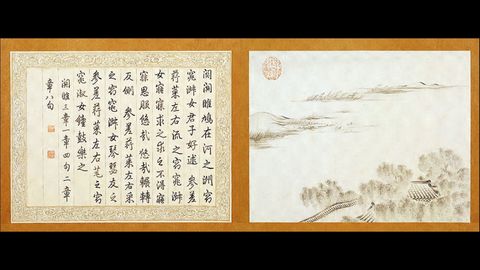 關關雎鳩在河之洲窈
窕淑女君子好逑參差
荇菜左右流之窈窕淑
女寤寐求之求之不得寤
寐思服悠哉悠哉輾轉
反側參差荇菜左右采
之窈窕淑女琴瑟友之
參差荇菜左右芼之窈
窕淑女鐘鼓樂之
關雎三章一章四句二章
章八句